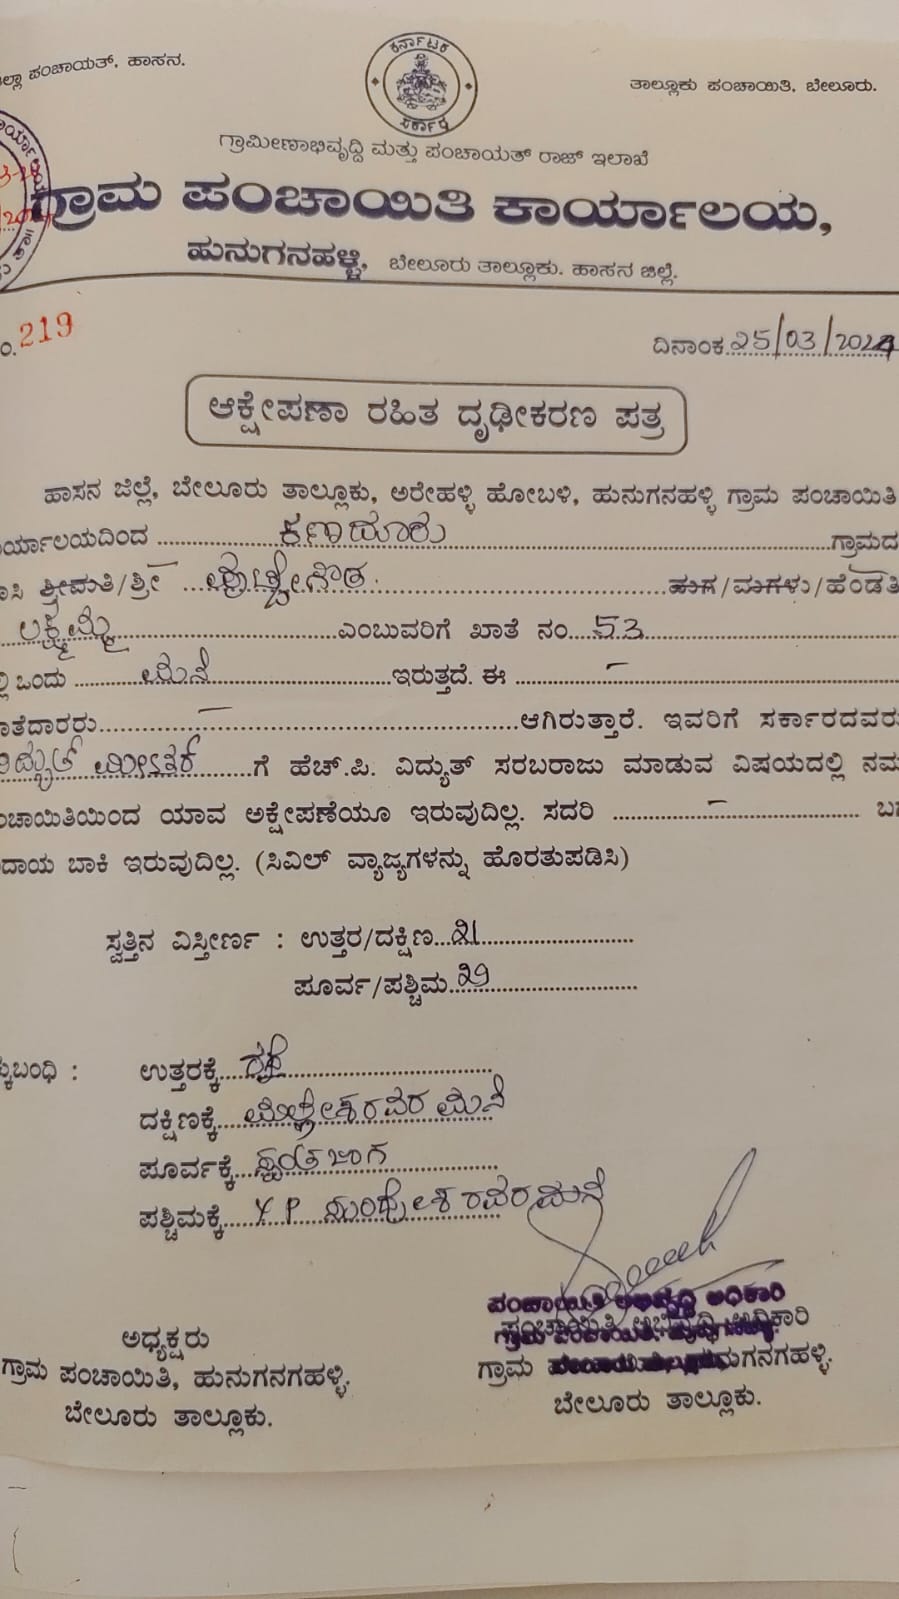 ಲ್ಲಾ ಪಂಚಾಯತ್, ಹಾಸನ.
ಕರ್ನಾಟಕ ಸರ್ಕಾರ
ತಾಲ್ಲೂಕು ಪಂಚಾಯಿತಿ, ಬೇಲೂರು.
ಗ್ರಾಮೀಣಾಭಿವೃದ್ದಿ ಮತ್ತು ಪಂಚಾಯತ್ ರಾಜ್ ಇಲಾಖೆ
ಗ್ರಾಮ ಪಂಚಾಯಿತಿ ಕಾರ್ಯಾಲಯ,
ಹುನುಗನಹಳ್ಳಿ, ಬೇಲೂರು ತಾಲ್ಲೂಕು. ಹಾಸನ ಜಿಲ್ಲೆ.
o. 219
ದಿನಾಂಕ 25/03/2024
ಆಕ್ಷೇಪಣಾ ರಹಿತ ದೃಢೀಕರಣ ಪತ್ರ
ಹಾಸನ ಜಿಲ್ಲೆ, ಬೇಲೂರು ತಾಲ್ಲೂಕು, ಅರೇಹಳ್ಳಿ ಹೋಬಳಿ, ಹುನುಗನಹಳ್ಳಿ ಗ್ರಾಮ ಪಂಚಾಯಿತಿ
ರ್ಯಾಲಯದಿಂದ ಕಣಾದೂರು ಗ್ರಾಮದ
ಾಸಿ ಶ್ರೀಮತಿ/ಶ್ರೀ ಪುಟ್ಟೇಗೌಡ. ಮಗ/ಮಗಳು/ಹೆಂಡತಿ
ಲಕ್ಷ್ಮಮ್ಮ ಎಂಬುವರಿಗೆ ಖಾತೆ ನಂ. 53
ಲ್ಲಿ ಒಂದು ಮನೆ ಇರುತ್ತದೆ. ಈ –
ಾತೆದಾರರು – ಆಗಿರುತ್ತಾರೆ. ಇವರಿಗೆ ಸರ್ಕಾರದವರು
ವಿದ್ಯುತ್ ಮೀಟರ್ ಗೆ ಹೆಚ್.ಪಿ. ವಿದ್ಯುತ್ ಸರಬರಾಜು ಮಾಡುವ ವಿಷಯದಲ್ಲಿ ನಮ
ಂಚಾಯಿತಿಯಿಂದ ಯಾವ ಅಕ್ಷೇಪಣೆಯೂ ಇರುವುದಿಲ್ಲ. ಸದರಿ – ಬ
ದಾಯ ಬಾಕಿ ಇರುವುದಿಲ್ಲ. (ಸಿವಿಲ್ ವ್ಯಾಜ್ಯಗಳನ್ನು ಹೊರತುಪಡಿಸಿ)
ಸ್ವತ್ತಿನ ವಿಸ್ತೀರ್ಣ : ಉತ್ತರ/ದಕ್ಷಿಣ 21
ಪೂರ್ವ/ಪಶ್ಚಿಮ
ಕ್ಕುಬಂಧಿ : ಉತ್ತರಕ್ಕೆ ರಸ್ತೆ
ದಕ್ಷಿಣಕ್ಕೆ ಮಲ್ಲೇಶರವರ ಮನೆ
ಪೂರ್ವಕ್ಕೆ ಸ್ವಂತ ಜಾಗ
ಪಶ್ಚಿಮಕ್ಕೆ Y P ಮಂಜೇಶರವರ ಮನೆ
ಅಧ್ಯಕ್ಷರು
ಗ್ರಾಮ ಪಂಚಾಯಿತಿ, ಹುನುಗನಗಹಳ್ಳಿ.
ಬೇಲೂರು ತಾಲ್ಲೂಕು.
ಪಂಚಾಯಿತಿ ಅಭಿವೃದ್ಧಿ ಅಧಿಕಾರಿ
ಪಂಚಾಯಿತಿ ಅಭಿವೃದ್ಧಿ ಅಧಿಕಾರಿ
ಗ್ರಾಮ ನುಗನಗಹಳ್ಳಿ.
ಬೇಲೂರು ತಾಲ್ಲೂಕು.